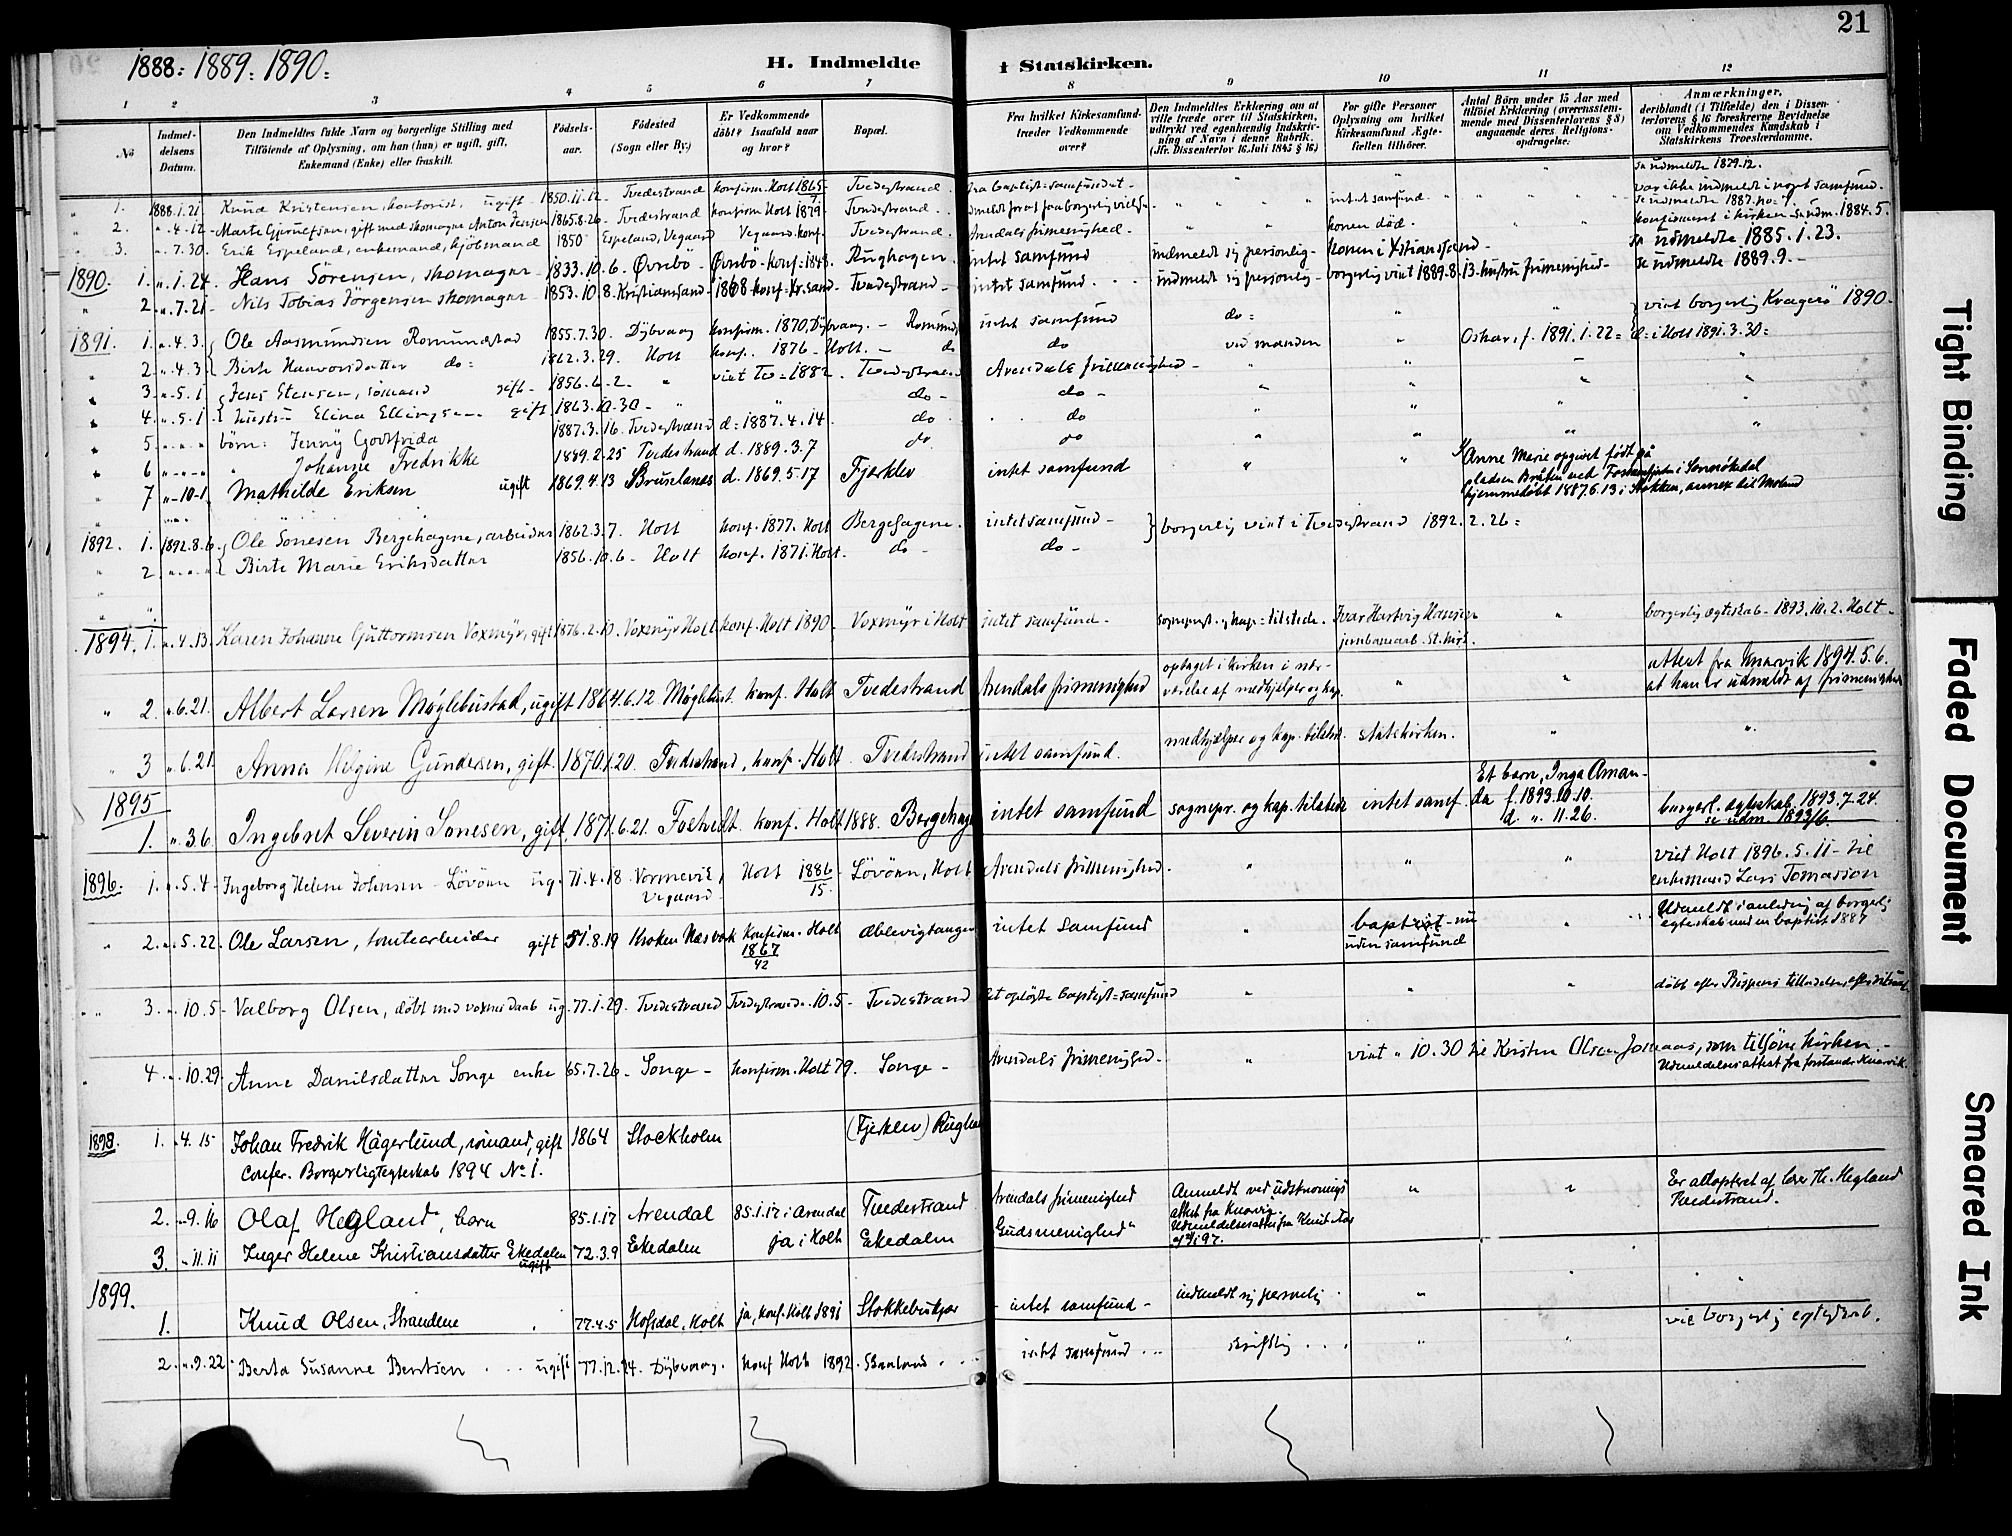 21
1888: 1889: 1890:
H. Indmeldte i Statskirken.
1 2 3 4 5 6 7 8 9 10 11 12
No
Indmeldelsens Datum.
Den Indmeldtes fulde Navn og borgerlige Stilling med
Tilföiende af Oplysning, om han (hun) er ugift, gift,
Enkemand (Enke) eller fraskilt.
Födselsaar.
Födested
(Sogn eller By.)
Er Vedkommende
döbt? Isaafald naar
og hvor?
Bopæl.
Fra hvilket Kirkesamfund
træder Vedkommende
over?
Den Indmeldtes Erklæring om at
ville træde over til Statskirken,
udtrykt ved egenhændig Indskrivning
af Navn i denne Rubrik.
(Jfr. Dissenterlov 16 Juli 1845 § 16)
For gifte Personer
Oplysning om hvilket
Kirkesamfund Ægtefællen
tilhörer.
Antal Börn under 15 Aar med
tilföiet Erklæring (overensstemmende
med Dissenterlovens § 8)
angaaende deres Religionsopdragelse.
Anmærkninger,
deriblandt (i Tilfælde) den i Dissenterlovens
§ 16 foreskrevne Bevidnelse
om Vedkommendes Kundskab i
Statskirkens Troeslærdomme.
" 1. 1888.1.21. Knud Kristensen, kontorist, ugift 1850.11.12. Tvedestrand konfirm. Holt 1865 Tvedestrand. fra baptist-samfundet - se udmeldte 1879.12.
" 2. " 4.12 - Marte Gjerulfsen, gift med skomager Anton Jensen 1865.8.26 - Tvedestrand konfirm Holt 1879. Tvedestrand. intet samfund var ikke indmeldt i noget samfund. se udmeldte 1887.
" 3. " 7.30. Erik Espeland, enkemand, kjöbmand 1850 Espeland, Vegaard Vegaard. konf. Tvedestrand. Arendals frimenighed. konen död. konfirmeret i kirken se udm. 1884.5.
1890. 1. " 1.24. Hans Sörensen, skomager 1833.10.6. Øvrebö - Øvrebö-konf. 1848. Rughagen. intet samfund indmeldt sig personlig - konen i Xstianssand - se udmeldte 1885.1.23.
" 2. " 7.21 - Nils Tobias Jörgensen skomager 1853.10.8. Kristianssand - 1868 konf. Kr.sand - Tvedestrand - intet samfund. indmeldt sig personlig - borgerlig viet 1889.8.13. hustru frimenighed - se udmeldte 1889.9.
1891. 1. " 4.3. Ole Aasmundsen Romundstad 1855.7.30. Dybvaag konfirm. 1870, Dybvaag. - Romunds intet samfund do = " " viet borgerlig Kragerö 1890.
" 2. " 4.3. Birte Haavorsdatter do = 1862.3.29. Holt konf. 1876 - Holt. - do do ved manden " Oskar, f. 1891.1.22 = d: i Holt 1891.3.30 =
" 3. " 5.1. Jens Stensen, sömand gift - 1856.6.2. " viet Tv = 1882. Tvedestrand Arendals frimenighed -
" 4. " 5.1 - hustru Elina Ellingsen gift 1863.10.30 - " do - do -
" 5. " " " börn: Jenny Godtfrida 1887.3.16. Tvedestrand d = 1887.4.14. do do
" 6 " " " " Johanne Fredrikke 1889.2.25 Tvedestrand d. 1889.3.7 do do
" 7 " 10.1. Mathilde Eriksen ugift 1869.4.13 Bruselands d. 1869.5.17 Fjerklev intet samfund " " Anne Marie opgivet født på
pladsen Bråten ved i Sannökedal
hjemmedöbt 1887.6.13 i Stokken, annex til Moland
1892. 1. 1892.8.6. Ole Sönesen Bergehagene, arbeider 1862.3.7. Holt konf. 1877. Holt Bergehagene. intet samfund - borgerlig viet i Tvedestrand 1892.2.26 =
" 2. " " " Birte Marie Eriksdatter 1856.10.6 - Holt konf. 1871. Holt. do - do -
1894. 1. " 4.13. Karen Johanne Guttormsen Voxmyr, gift 1876.2.10. Voxmyr Holt konf. Holt 1890 - Voxmyr i Holt intet samfund. sognepr. og kap = tilstede. Ivar Hartvig Hansen
jernbanearb. St.kirk. " borgerlig egteskab - 1893.10.2. Holt -
" 2. " 6.21. Albert Larsen Møglebustad, ugift 1864.6.12 Møglebust. konf. Holt Tvedestrand Arendals frimenighed optaget i kirken i nærværelse
af medhjelper og kap. " " attest fra Knarvik 1894.5.6.
at han er udmeldt af frimenighed
" 3 " 6.21 Anna Helgine Gundersen, gift. 1870.1.20. Tvedestrand, konf. Holt Tvedestrand intet samfund. medhjelper og kap. tilsted. statskirken. " "
1895
1. " 3.6. Ingebret Severin Sonesen, gift. 1871.6.21. Fostvedt. konf. Holt 1888. Bergehage intet samfund sognepr. og kap. tilstede intet samf. Et barn, Inga Amanda
f. 1893.10.10.
d. " 11.26. borgerl. egteskab. 1893.7.24.
se udm. 1893/6.
1896. 1. " 5.4 - Ingeborg Helene Johnsen - Lövönn ug. 71.4.18 Vormevik, Vegaard Holt 1886/15 - Lövönn, Holt Arendals frimenighed. " " " viet Holt 1896.5.11 - til
enkemand Lars Tomasson
" 2. " 5.22. Ole Larsen, tomtearbeider gift 51.8.19 Kroken Næs verk konfirm. Holt 1867/42 Æblevigtangen intet samfund " baptist - nu
uden samfund " Udmeldt i anledning af borgerlig
egteskab med en baptist 1887
" 3. " 10.5 - Valborg Olsen, döbt med voxnes daab ug. 77.1.29. Tvedestrand Tvedestrand. 10.5 - Tvedestrand det oplöste baptist = samfund " " " döbt efter Bispens tilladelse
" 4. " 10.29. Anne Danilsdatter Songe enke 65.7.26 - Songe - konfirm. Holt 79. Songe - Arendals frimenighed. " viet " 10.30 til Kristen Olsen Jomaas, som tilhörer kirken. -
Udmeldelsesattest fra forstander Knarvik.
1898. 1. " 4.15 Johan Fredrik Hägerlund, sömand, gift 1864 Stockholm (Fjerklev) Rughav
Confer. Borgerligt egteskab 1894 No 1.
2. " 9.16 Olaf Hegland, barn 85.1.17 Arendal 85.1.17 i Arendal Tvedestrand Arendals frimenighed Anmeldt ved udskrivnings
attest fra Knarvig. " " Er adopteret af lærer Th. Hegland
Tvedestrand.
3. " 11.11 Inger Helene Kristiansdatter Ekedalen ugift 72.3.9 Ekedalen ja i Holt Ekedalen Gudsmenighed" Udmeldelsesattest fra Knut Aas
1899.
1. Knud Olsen, Strandene 77.4.5 Hofsdal, Holt ja, konf. Holt 1891 Stokkebukjær - intet samfund - indmeldt sig personlig. "
2. " 9.22 - Berta Susanne Berntsen ... ugift 77.12.24. Dybvaag. konf Holt 1892. Skaaland. intet samfund ... skriftlig " " vil borgerlig egteskab.
Tight Binding
Faded Document
Smeared Ink